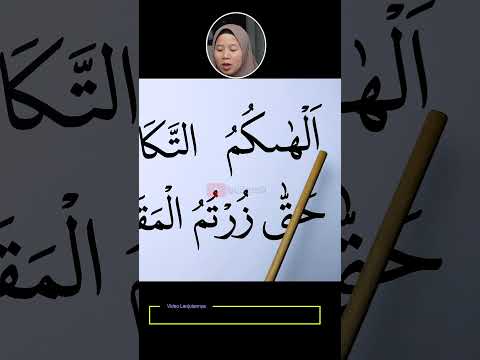 اَلْهٰىكُمُ التَّكَا
حَتّٰى زُرْتُمُ الْمَقَ
Video Lanjutannya